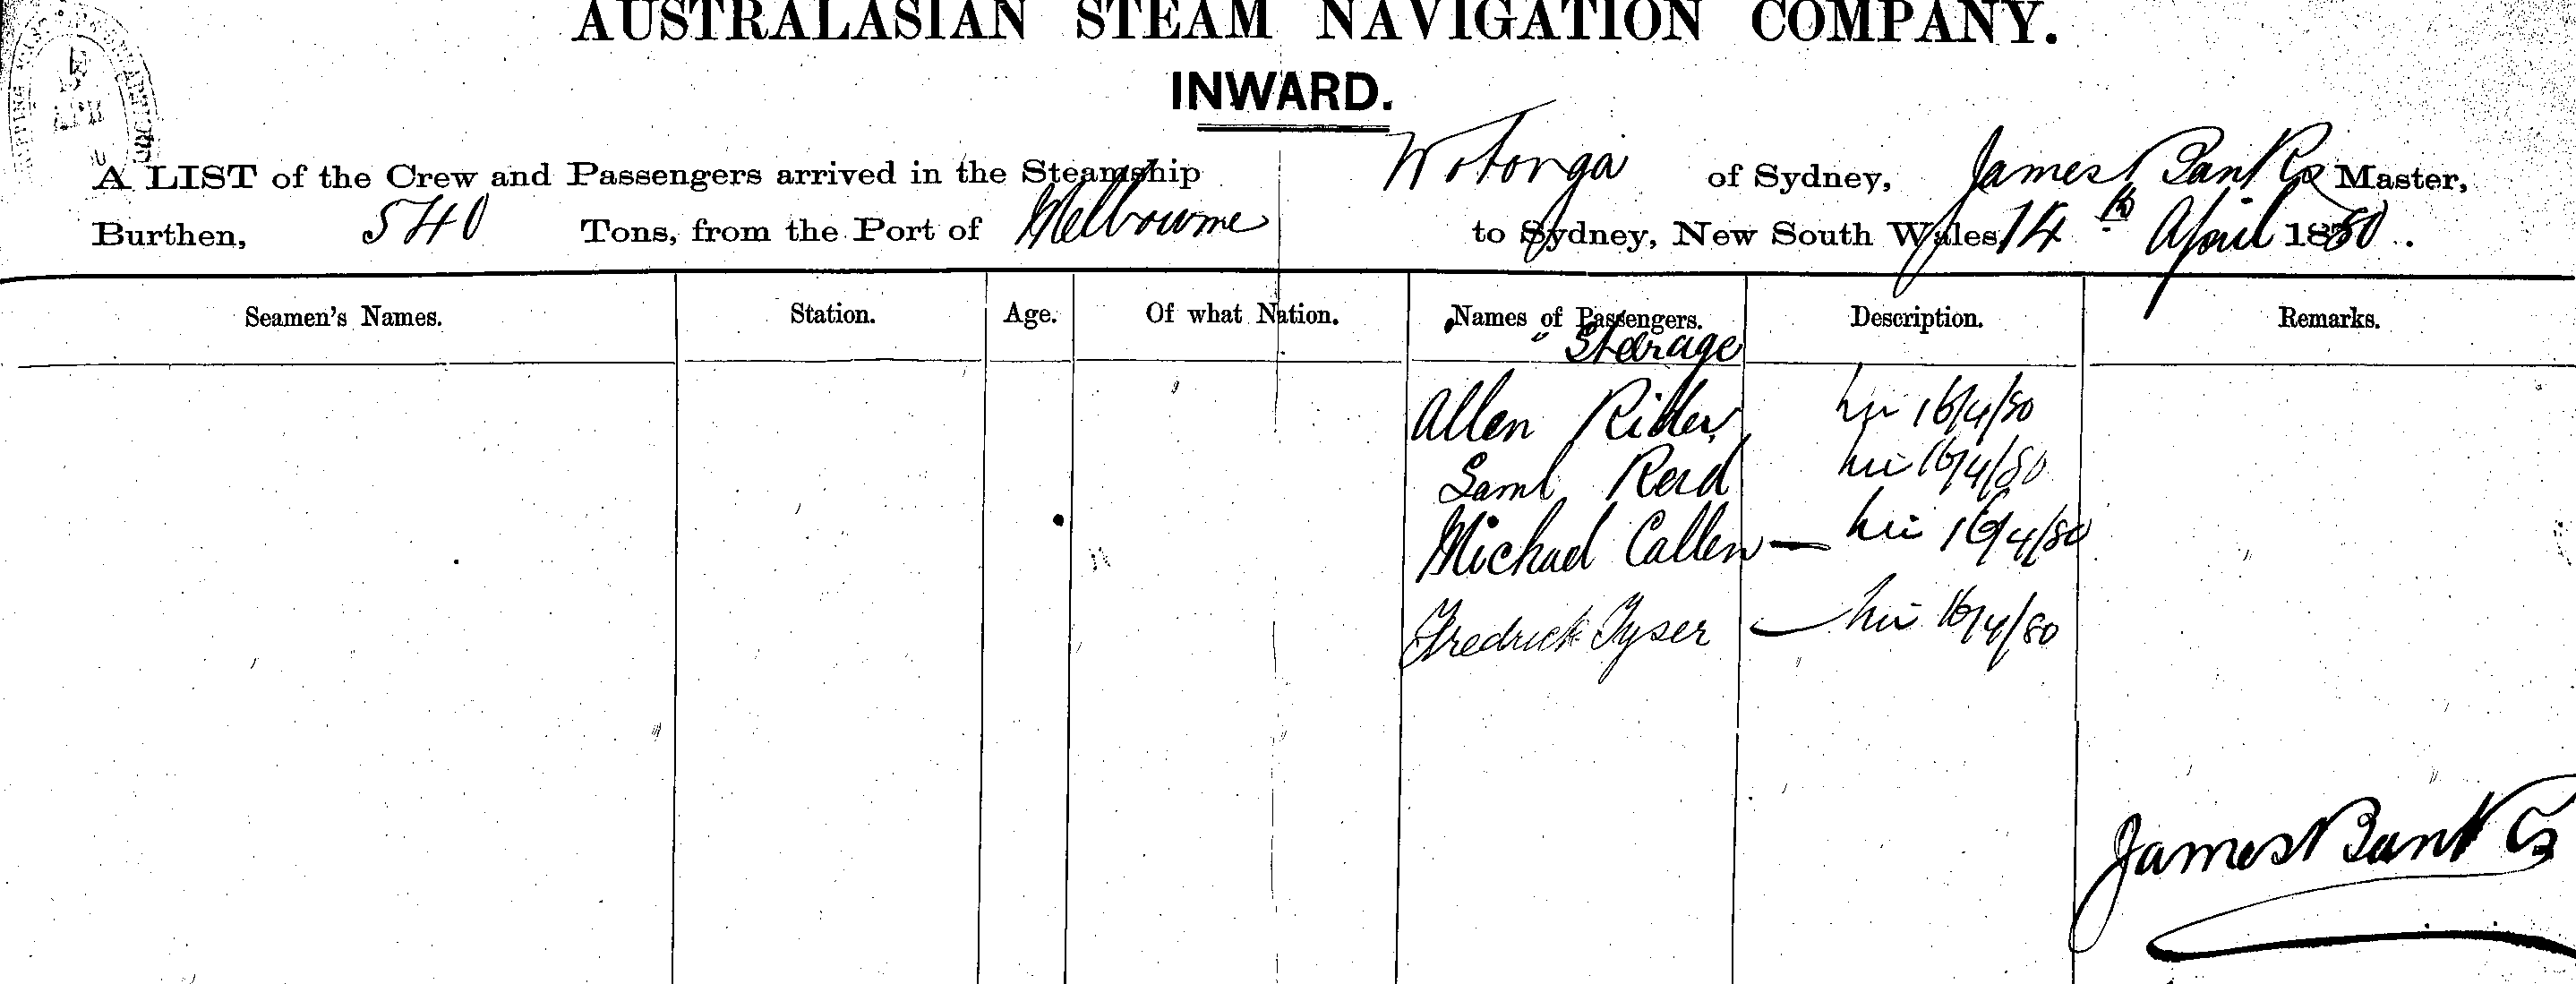 AUSTRALASIAN STEAM NAVIGATION COMPANY.
INWARD.
A LIST of the Crew and Passengers arrived in the Steamship Wotonga of Sydney, James Banks Master,
Burthen, 540 Tons, from the Port of Melbourne to Sydney, New South Wales 14th April 1880.
Seamen's Names. Station. Age. Of what Nation. Names of Passengers. Description. Remarks.
Steerage
Allen 16/4/80
Saml 16/4/80
Michael Callen — 16/4/80
Fredrick Tyser — 16/4/80
James Banks